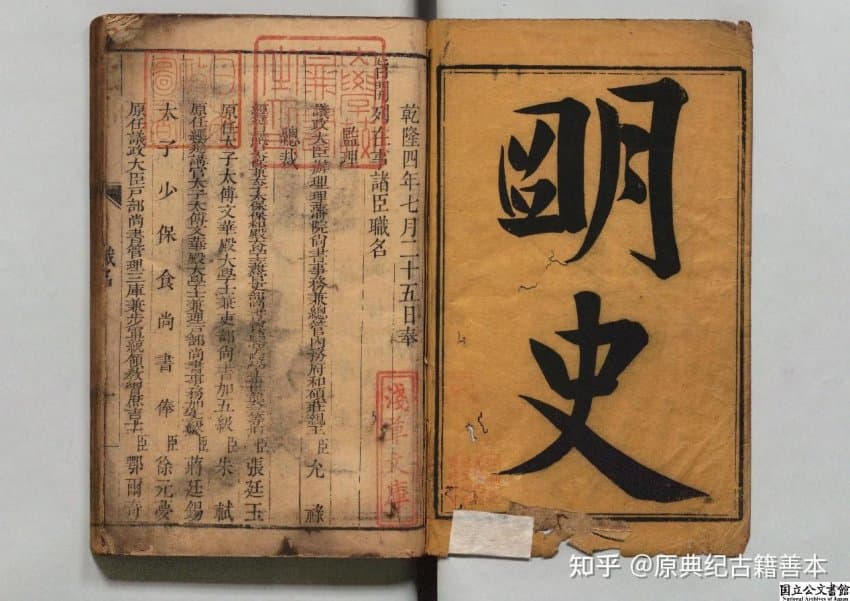 明史
乾隆四年七月二十五日奉
旨開列在事諸臣職名
監理
議政大臣辦理理藩院尚書事務兼總管內務府和碩莊親王臣允祿
總裁
張廷玉
原任太子太傅文華殿大學士兼吏部尚書加五級臣朱軾
原任經筵講官太子太傅文華殿大學士兼理戶部尚書事務加七級臣蔣廷錫
太子少保食尚書俸臣徐元夢
原任議政大臣戶部尚書管理三庫兼步軍統領教習庶吉士臣鄂爾奇
職名
淺草文庫
知乎 @原典纪古籍善本
国立公文書館
National Archives of Japan